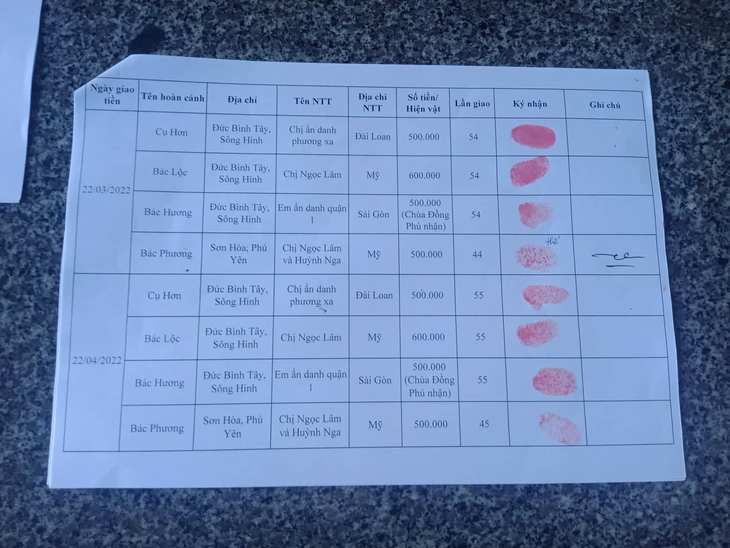 Ngày giao tiền Tên hoàn cảnh Địa chỉ Tên NTT Địa chỉ NTT Số tiền/ Hiện vật Lần giao Ký nhận Ghi chú
22/03/2022
Cụ Hơn Đức Bình Tây, Sông Hinh Chị ẩn danh phương xa Đài Loan 500.000 54
Bác Lộc Đức Bình Tây, Sông Hinh Chị Ngọc Lâm Mỹ 600.000 54
Bác Hương Đức Bình Tây, Sông Hinh Em ẩn danh quận 1 Sài Gòn 500.000 (Chùa Đồng Phú nhận) 54
Bác Phương Sơn Hòa, Phú Yên Chị Ngọc Lâm và Huỳnh Nga Mỹ 500.000 44
22/04/2022
Cụ Hơn Đức Bình Tây, Sông Hinh Chị ẩn danh phương xa Đài Loan 500.000 55
Bác Lộc Đức Bình Tây, Sông Hinh Chị Ngọc Lâm Mỹ 600.000 55
Bác Hương Đức Bình Tây, Sông Hinh Em ẩn danh quận 1 Sài Gòn 500.000 (Chùa Đồng Phú nhận) 55
Bác Phương Sơn Hòa, Phú Yên Chị Ngọc Lâm và Huỳnh Nga Mỹ 500.000 45